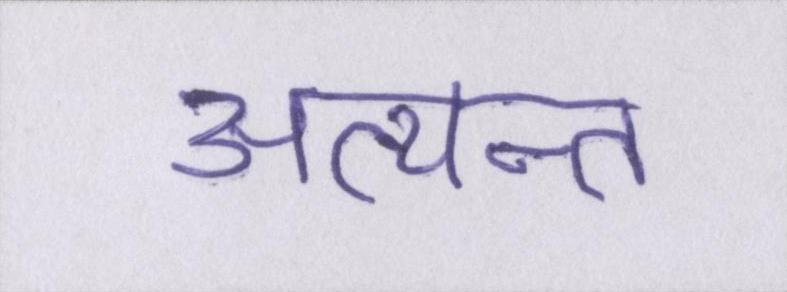 अत्यन्त